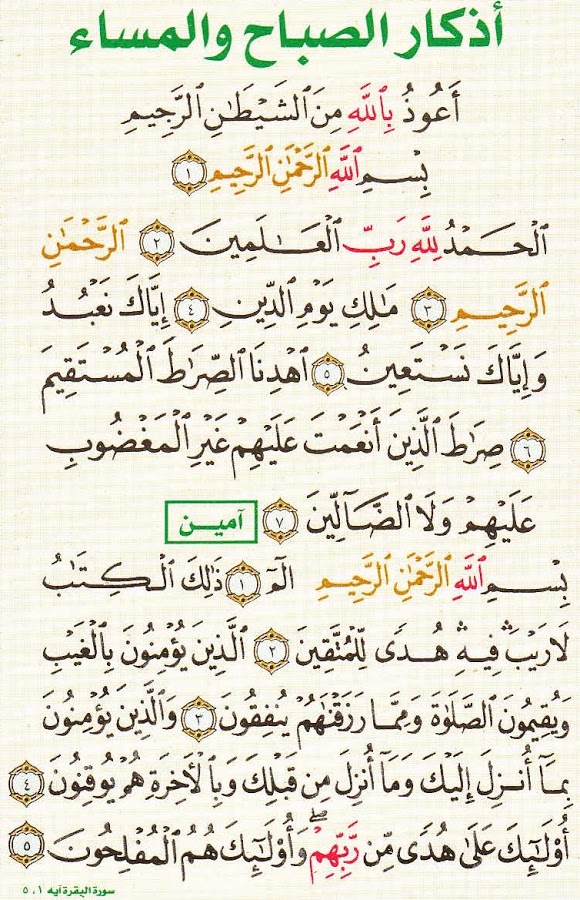 أذكار الصباح والمساء
أَعُوذُ بِاللَّهِ مِنَ ٱلشَّيْطَٰنِ ٱلرَّجِيمِ
بِسْمِ ٱللَّهِ ٱلرَّحْمَٰنِ ٱلرَّحِيمِ ١
ٱلْحَمْدُ لِلَّهِ رَبِّ ٱلْعَٰلَمِينَ ٢ ٱلرَّحْمَٰنِ
ٱلرَّحِيمِ ٣ مَٰلِكِ يَوْمِ ٱلدِّينِ ٤ إِيَّاكَ نَعْبُدُ
وَإِيَّاكَ نَسْتَعِينُ ٥ ٱهْدِنَا ٱلصِّرَٰطَ ٱلْمُسْتَقِيمَ
٦ صِرَٰطَ ٱلَّذِينَ أَنْعَمْتَ عَلَيْهِمْ غَيْرِ ٱلْمَغْضُوبِ
عَلَيْهِمْ وَلَا ٱلضَّآلِّينَ ٧ آمين
بِسْمِ ٱللَّهِ ٱلرَّحْمَٰنِ ٱلرَّحِيمِ الٓمٓ ١ ذَٰلِكَ ٱلْكِتَٰبُ
لَا رَيْبَ ۛ فِيهِ ۛ هُدًى لِّلْمُتَّقِينَ ٢ ٱلَّذِينَ يُؤْمِنُونَ بِٱلْغَيْبِ
وَيُقِيمُونَ ٱلصَّلَوٰةَ وَمِمَّا رَزَقْنَٰهُمْ يُنفِقُونَ ٣ وَٱلَّذِينَ يُؤْمِنُونَ
بِمَآ أُنزِلَ إِلَيْكَ وَمَآ أُنزِلَ مِن قَبْلِكَ وَبِٱلْأَخِرَةِ هُمْ يُوقِنُونَ ٤
أُوْلَٰٓئِكَ عَلَىٰ هُدًى مِّن رَّبِّهِمْ ۖ وَأُوْلَٰٓئِكَ هُمُ ٱلْمُفْلِحُونَ ٥
سورة البقرة آيه ١، ٥